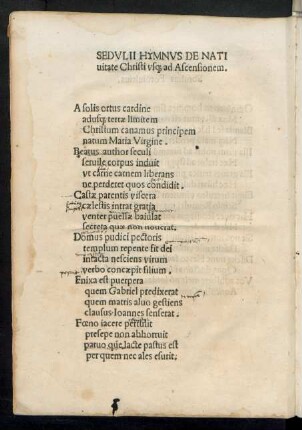 SEDVLII HYMNVS DE NATI
uitate Christi vsq; ad Ascensionem.
A solis ortus cardine
adusq; terræ limitem
Christum canamus principem
natum Maria Virgine.
Beatus author seculi
seruile corpus induit
vt carne carnem liberans
ne perderet quos condidit.
Castæ parentis viscera
cælestis intrat gratia
venter puellæ baiulat
secreta quæ non nouerat.
Domus pudici pectoris
templum repente fit dei
intacta nesciens virum
verbo concæpit filium.
Enixa est puerpera
quem Gabriel predixerat
quem matris aluo gestiens
clausus Ioannes senserat.
Fœno iacere pertulit
presepe non abhorruit
paruo que lacte pastus est
per quem nec ales esurit.